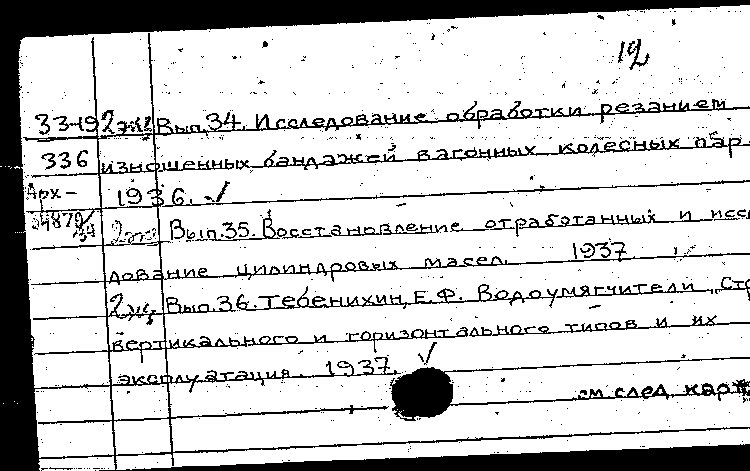 12
33-19 2 экз Вып. 34. Исследование обработки резанием
336 изношенных бандажей вагонных колесных пар.
Арх- 1936. ✓
2 экз Вып. 35. Восстановление отработанных и иссле
дование цилиндровых масел. 1937 ✓
2 экз Вып. 36. Тебенихин, Е.Ф. Водоумягчители „Стр
вертикального и горизонтального типов и их
эксплуатация. 1937. ✓
см след. карт